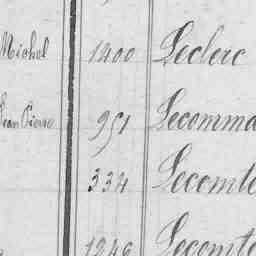 Michel 1400 Leclerc
Jean Pierre 951 Lecomma
334 Lecomte
1246 Lecomte